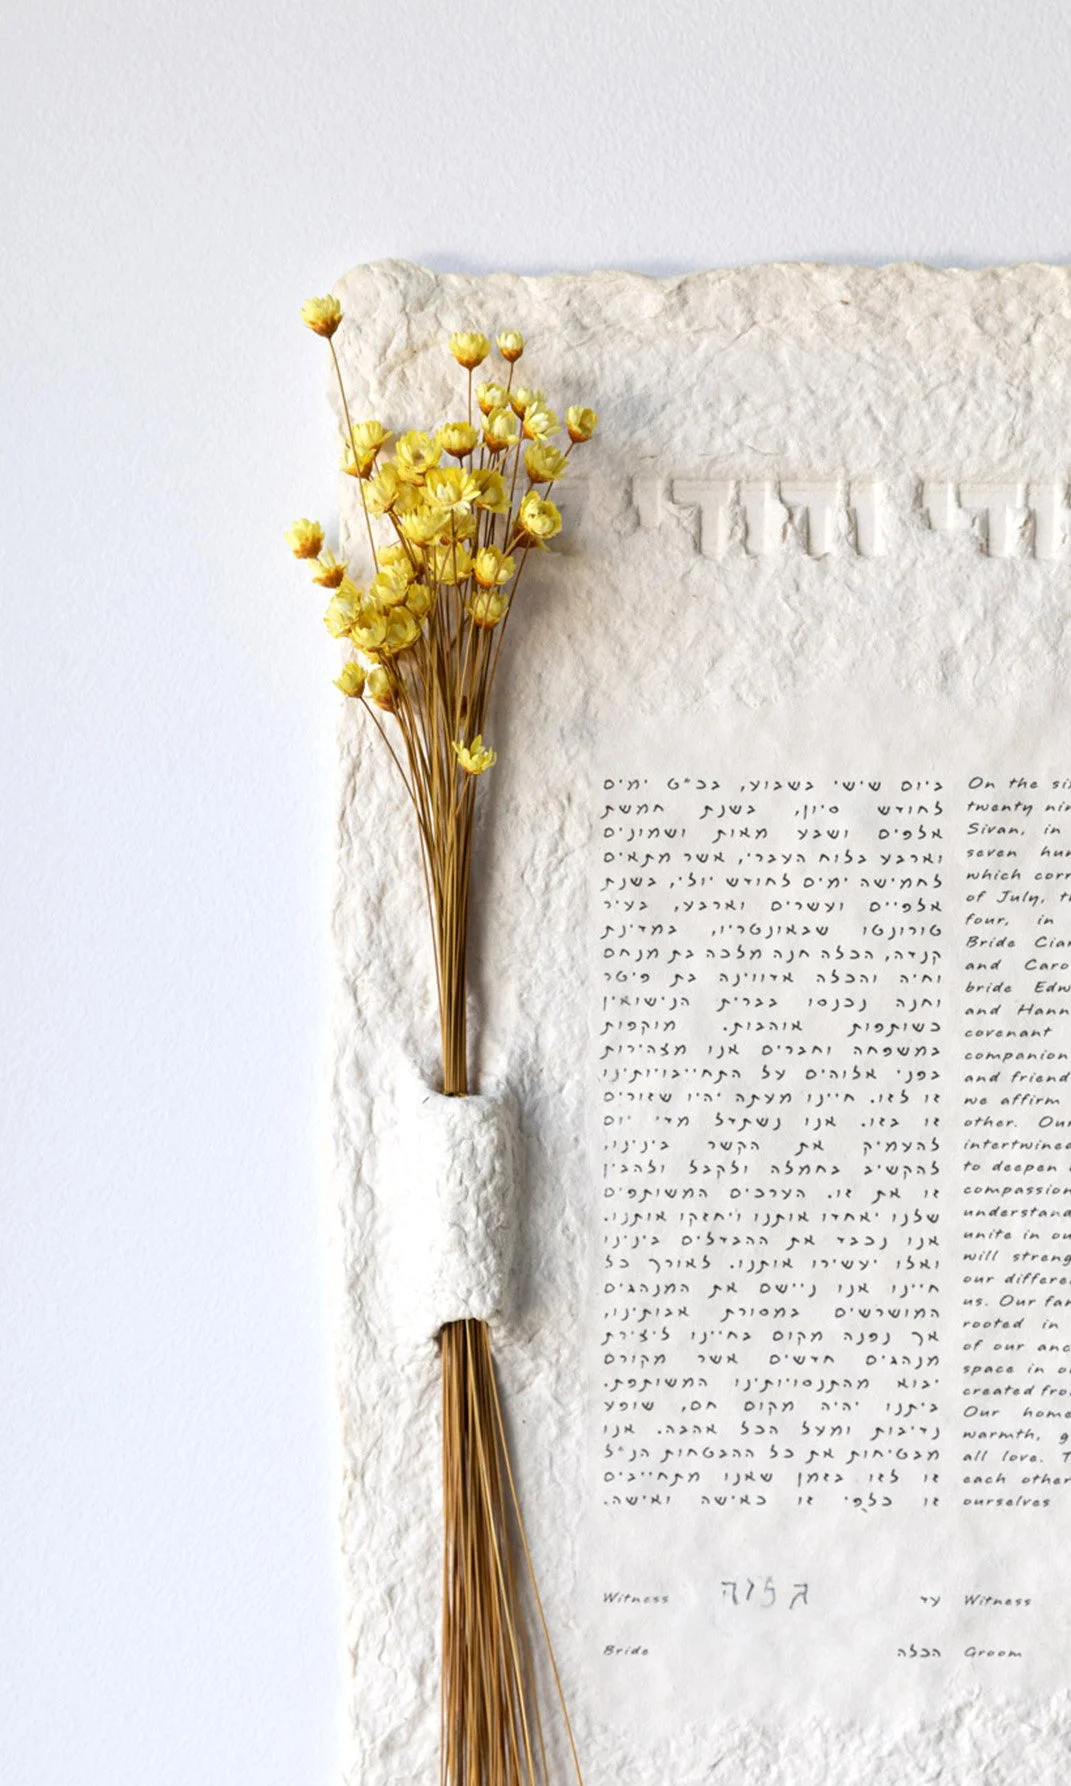 ביום שישי בשבוע, בכ״ט ימים
לחודש סיון, בשנת חמשת
אלפים ושבע מאות ושמונים
וארבע בלוח העברי, אשר מתאים
לחמישה ימים לחודש יולי, בשנת
אלפיים ועשרים וארבע, בעיר
טורונטו שבאונטריו, במדינת
קנדה, הכלה חנה מלכה בת מנחם
וחיה והכלה אדווינה בת פיטר
וחנה נכנסו בברית הנישואין
כשותפות אוהבות. מוקפות
במשפחה וחברים אנו מצהירות
בפני אלוהים על התחייבויותינו
זו לזו. חיינו מעתה יהיו שזורים
זו בזו. אנו נשתדל מדי יום
להעמיק את הקשר בינינו,
להקשיב בחמלה ולקבל ולהבין
זו את זו. הערכים המשותפים
שלנו יאחדו אותנו ויחזקו אותנו.
אנו נכבד את ההבדלים בינינו
ואלו יעשירו אותנו. לאורך כל
חיינו אנו ניישם את המנהגים
המושרשים במסורת אבותינו,
אך נפנה מקום בחיינו ליצירת
מנהגים חדשים אשר מקורם
יבוא מהתנסויותינו המשותפת.
ביתנו יהיה מקום חם, שופע
נדיבות ומעל הכל אהבה. אנו
מבטיחות את כל ההבטחות הנ״ל
זו לזו בזמן שאנו מתחייבים
זו כלפי זו כאישה ואישה.
On the
twenty
Sivan, in
seven
which
of July,
four, in
Bride
and
bride
and
covenant
companion
and friend
we affirm
other. Our
intertwined
to deepen
compassion
understand
unite in
will
our
us. Our
rooted in
of our
space in
created
Our home
warmth,
all love.
each other
ourselves
Witness עד
Witness
Bride הכלה
Groom